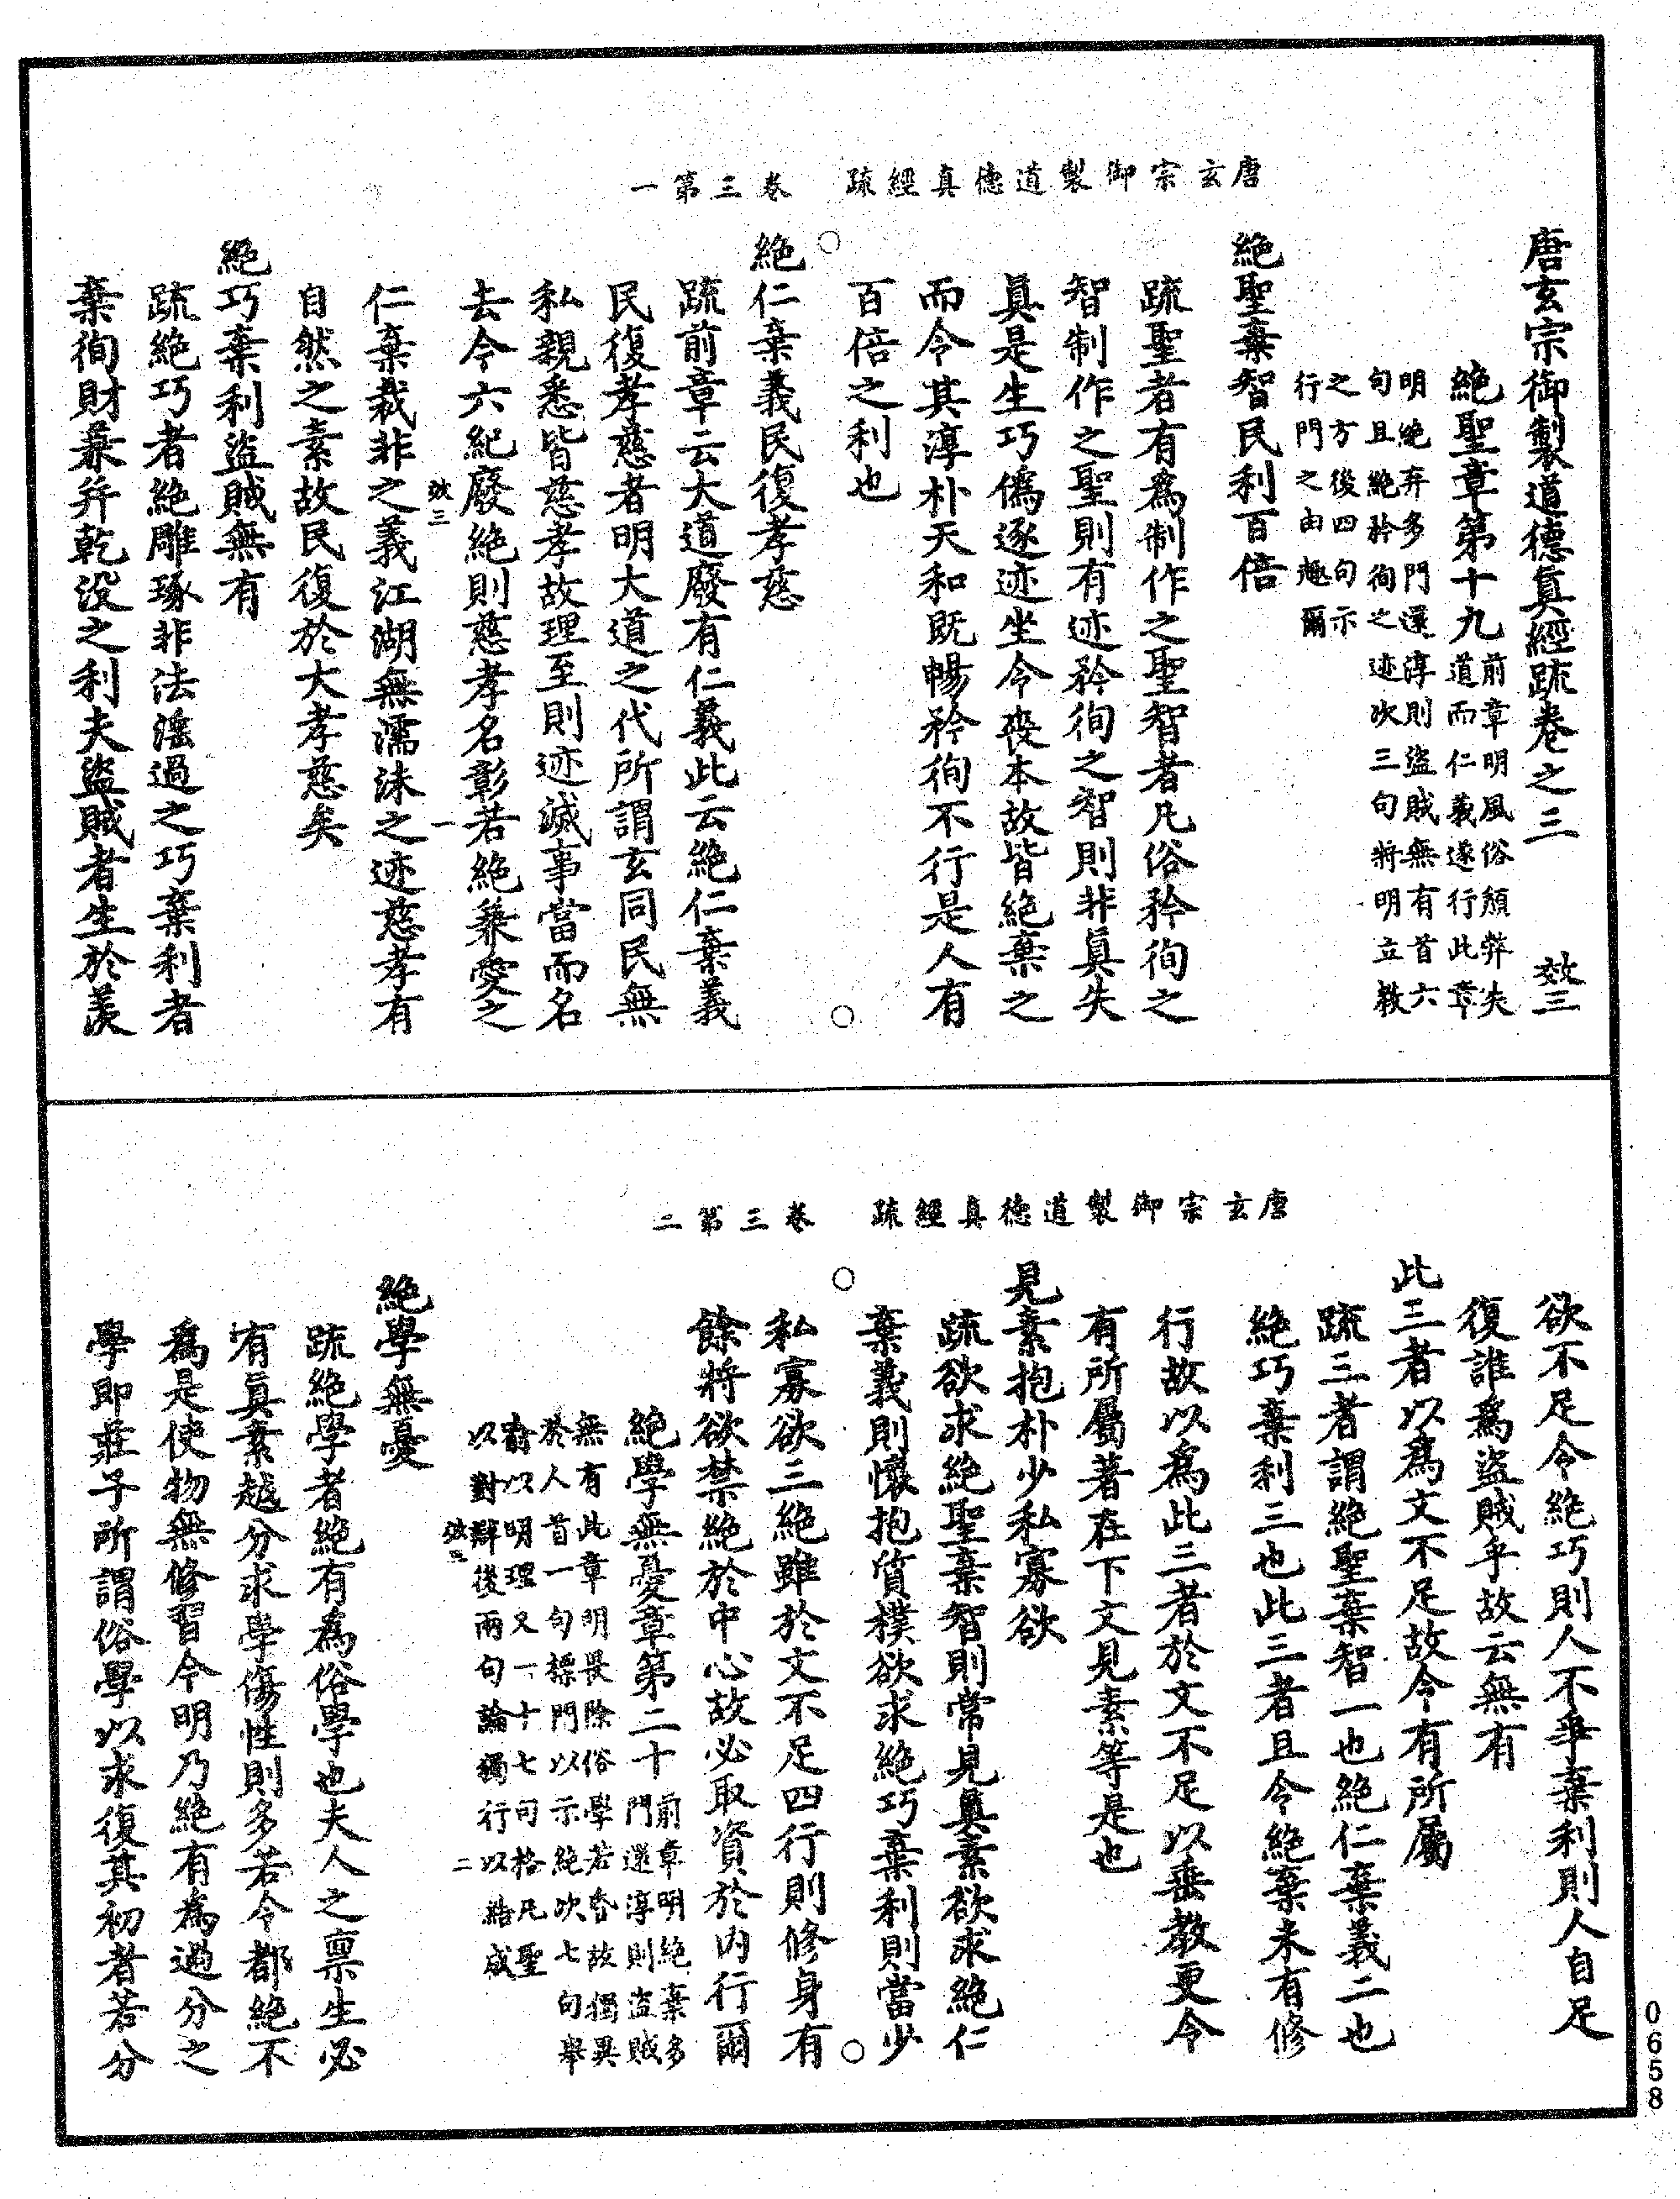 唐玄宗御製道德真經疏　卷三第一
唐玄宗御製道德眞經疏卷之三　效三
絕聖章第十九
前章明風俗頹弊失
道而仁義遂行此章
明絕弃多門還淳則盜賊無有首六
句且絕矜徇之迹次三句將明立教
之方後四句示
行門之由趣爾
絕聖棄智民利百倍
疏聖者有爲制作之聖智者凡俗矜徇之
智制作之聖則有迹矜徇之智則非眞失
眞是生巧僞逐迹坐令喪本故皆絕棄之
而令其淳朴天和既暢矜徇不行是人有
百倍之利也
絕仁棄義民復孝慈
疏前章云大道廢有仁義此云絕仁棄義
民復孝慈者明大道之代所謂玄同民無
私親悉皆慈孝故理至則迹滅事當而名
去今六紀廢絕則慈孝名彰若絕兼愛之
效三　一
仁棄裁非之義江湖無濡沫之迹慈孝有
自然之素故民復於大孝慈矣
絕巧棄利盜賊無有
疏絕巧者絕雕琢非法淫過之巧棄利者
棄徇財兼并乾沒之利夫盜賊者生於羨
唐玄宗御製道德真經疏　卷三第二
欲不足今絕巧則人不爭棄利則人自足
復誰爲盜賊乎故云無有
此三者以爲文不足故令有所屬
疏三者謂絕聖棄智一也絕仁棄義二也
絕巧棄利三也此三者且令絕棄未有修
行故以爲此三者於文不足以垂教更令
有所屬著在下文見素等是也
見素抱朴少私寡欲
疏欲求絕聖棄智則常見眞素欲求絕仁
棄義則懷抱質樸欲求絕巧棄利則當少
私寡欲三絕雖於文不足四行則修身有
餘將欲禁絕於中心故必取資於內行爾
絕學無憂章第二十
前章明絕棄多
門還淳則盜賊
無有此章明畏除俗學若昏故獨異
於人首一句標門以示絕次七句舉
以明理又一十七句格凡聖
以對辯後兩句論獨行以結成
效三　二
絕學無憂
疏絕學者絕有爲俗學也夫人之稟生必
有眞素越分求學傷性則多若令都絕不
爲是使物無修習今明乃絕有爲過分之
學即莊子所謂俗學以求復其初者若分
0658